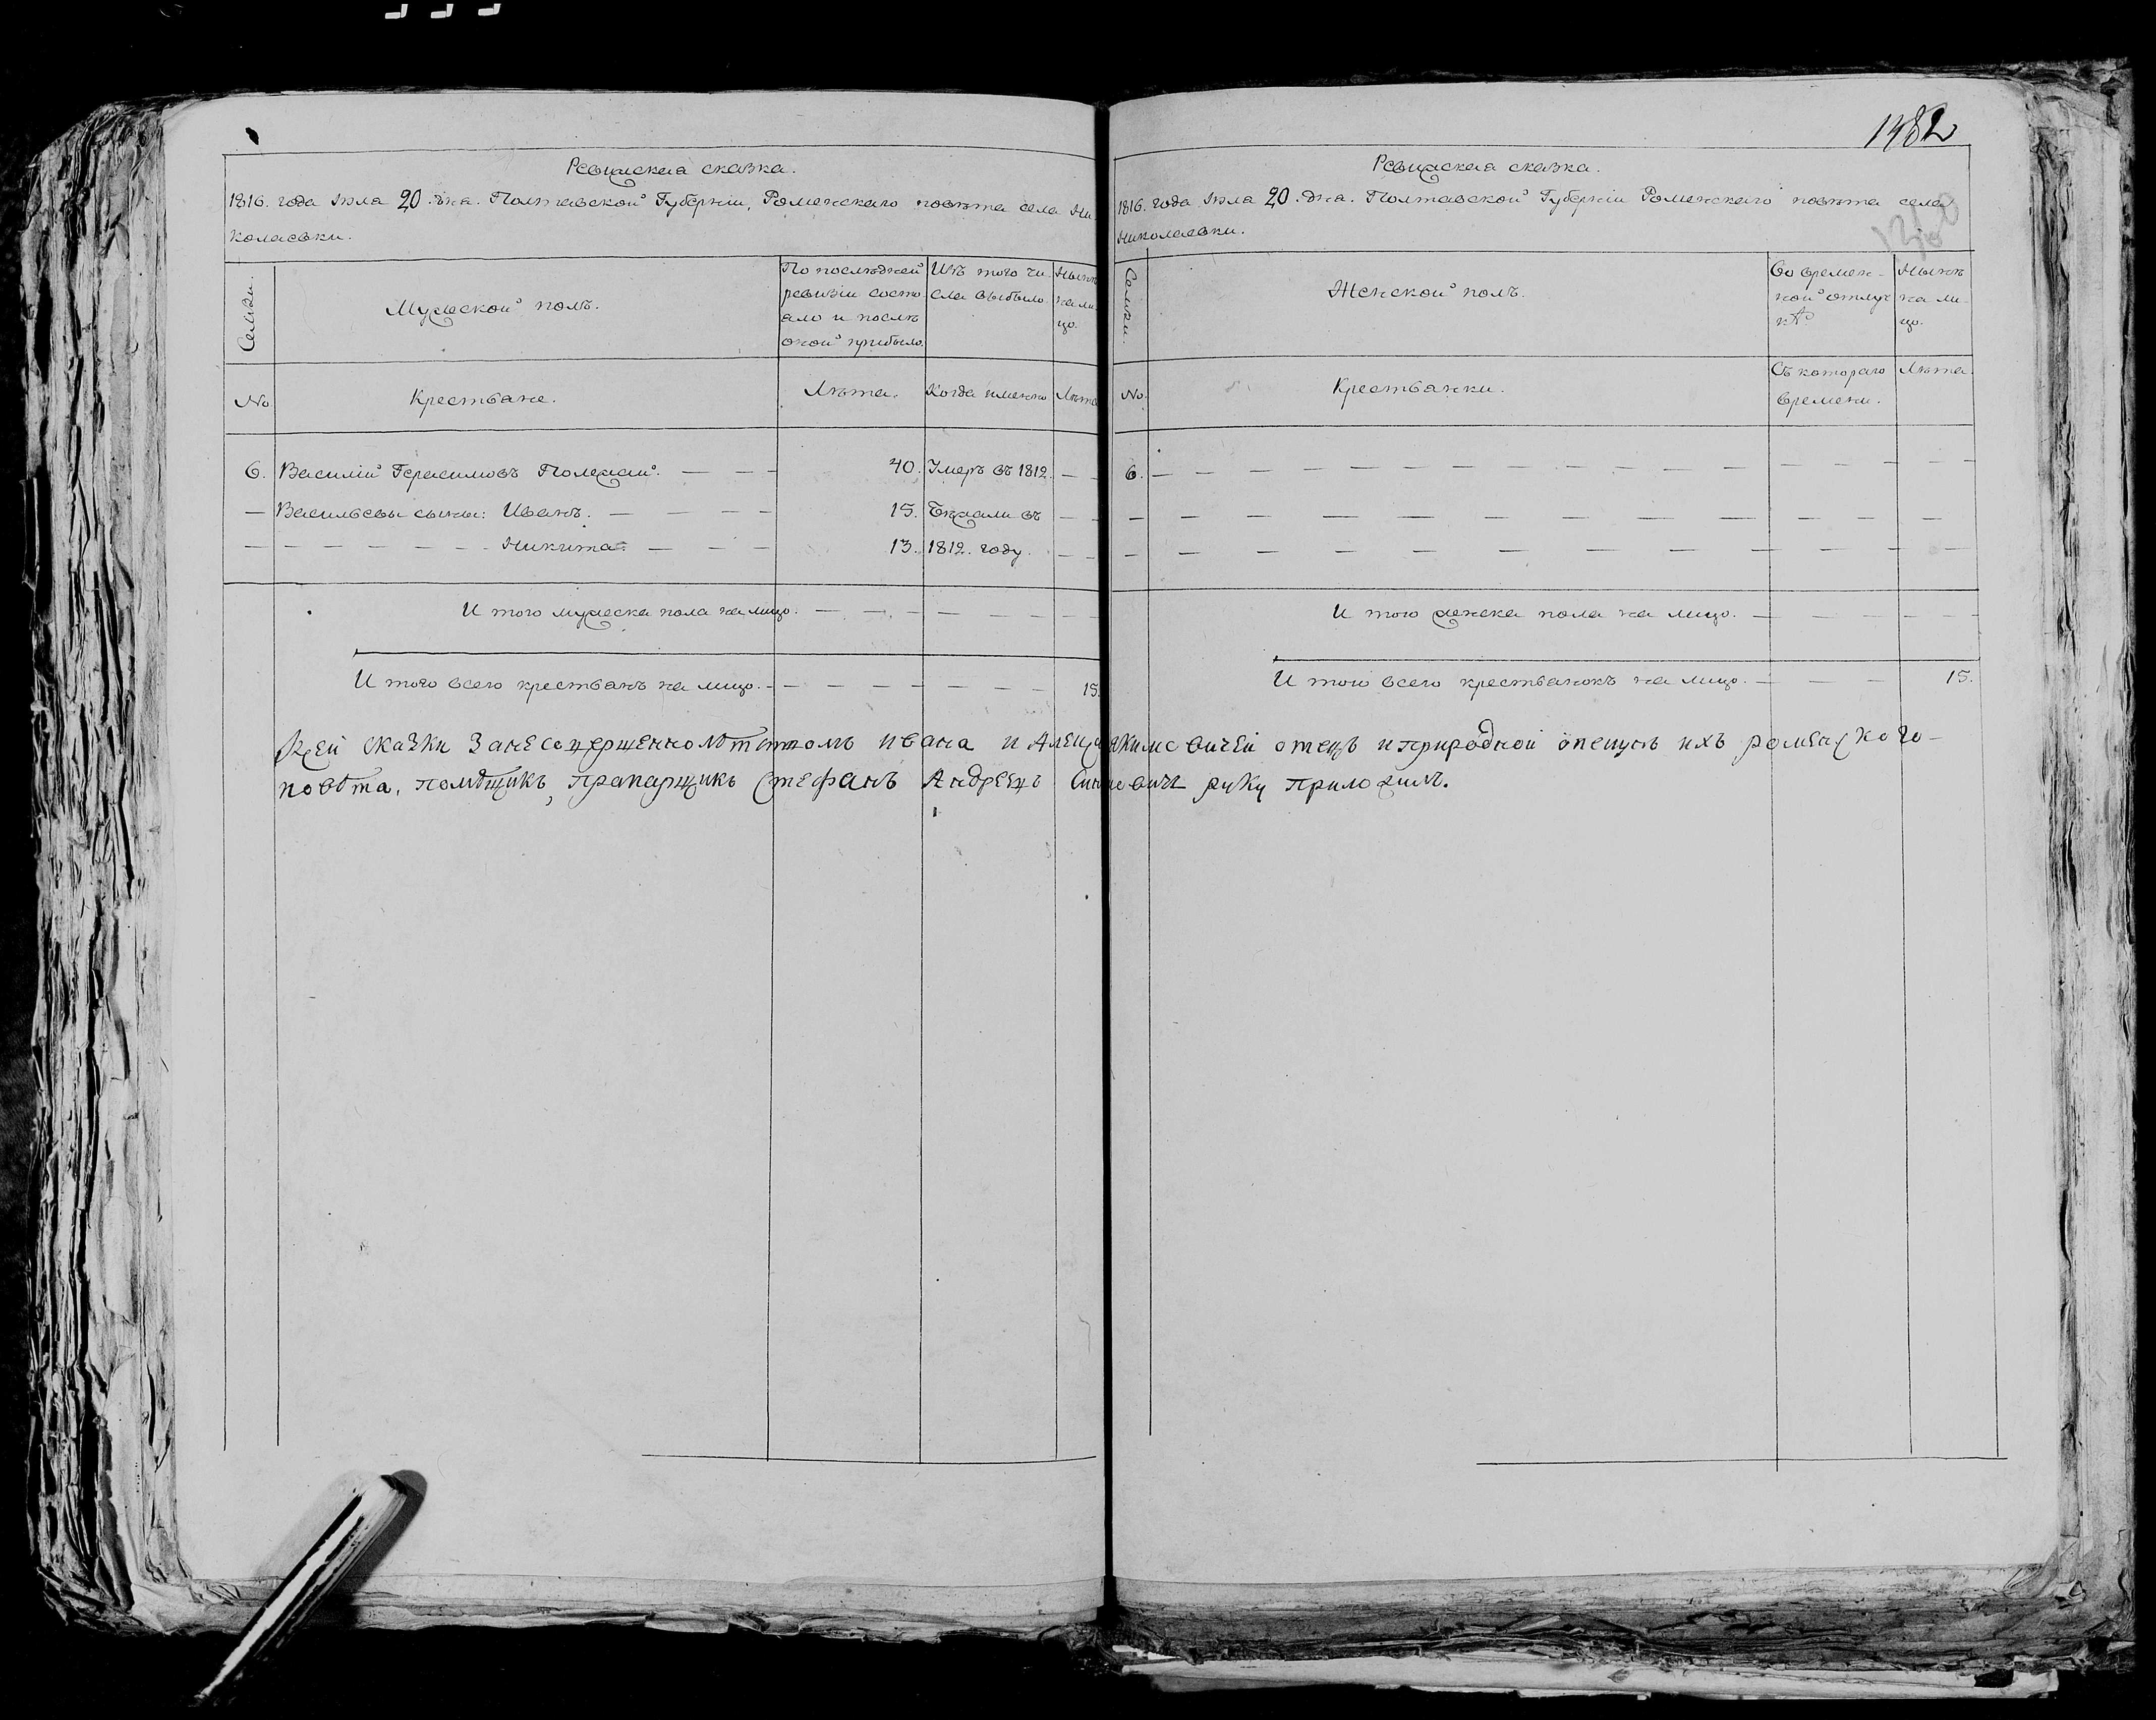 Ревижская сказка.
1816. года Июля 20. дня. Полтавской Губерніи, Роменскаго повѣта села Ни
колаевки.
Семьи.
Мужеской полъ.
По послѣдней
ревизіи состо
яло и послѣ
оной прибыло.
Изъ того чи
сла выбыло.
Нынѣ
на ли
цо.
No
Крестьяне.
Лѣта.
Когда именно
Лѣта
6. Василій Герасимовъ Полежай. — — — 40. Умеръ въ 1812. — —
— Васильевы сыны: Иванъ. — — — — 15. Бѣжали въ — —
— — — — — — Никита. — — — 13. 1812. году. — —
И того мужеска пола на лицо. — — — — — — —
И того всего крестьянъ на лицо. — — — — — — — 15.
1482
Ревижская сказка.
1816. года Июля 20. дня. Полтавской Губерніи Роменскаго повѣта села
Николаевки.
Семьи.
Женской полъ.
Во времен-
ной отлуч
кѣ
Нынѣ
на ли
цо.
No.
Крестьянки.
Съ котораго
времени.
Лѣта.
6. — — — — — — — — — — — — —
— — — — — — — — — — — — —
— — — — — — — — — — — — —
И того женска пола на лицо. — — — — —
И того всего крестьянокъ на лицо. — — — 15.
Ксей скаски Ивана и отецъ и природной опекунъ ихъ роменскаго-
повѣта, помѣщикъ, прапарщикъ Стефанъ Андреевъ руку приложилъ.